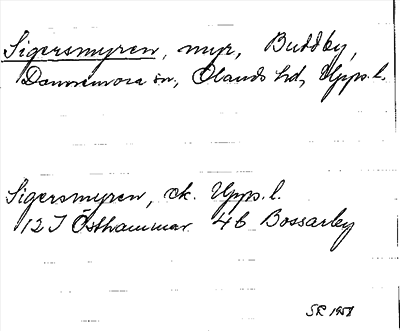 Sigersmyren, myr, Buddby,
Dannemora sn, Olands hd, Upps. l.
Sigersmyren, ek. Upps. l.
12 I Östhammar 4b Bossarby
SR 1958